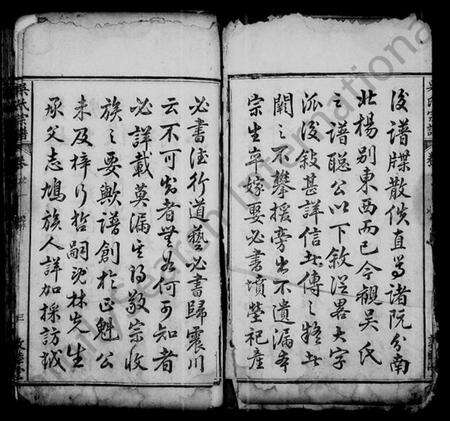 後譜牒散佚直等諸阮分南
北楊別東西而已今觀吳氏
之譜聰公以下敘從畧大字
派後敘甚詳信者傳之疑者
闕之不攀援旁出不遺漏本
宗生平嫁娶必書墳塋祀產
必書德行道藝必書歸震川
云不可知者無如何可知者
必詳載莫漏生得敬宗收
族之要歟譜創於正魁公
未及梓行哲嗣 林先生
承父志鳩族人詳加採訪誠
吳氏宗譜
FamilySearch International